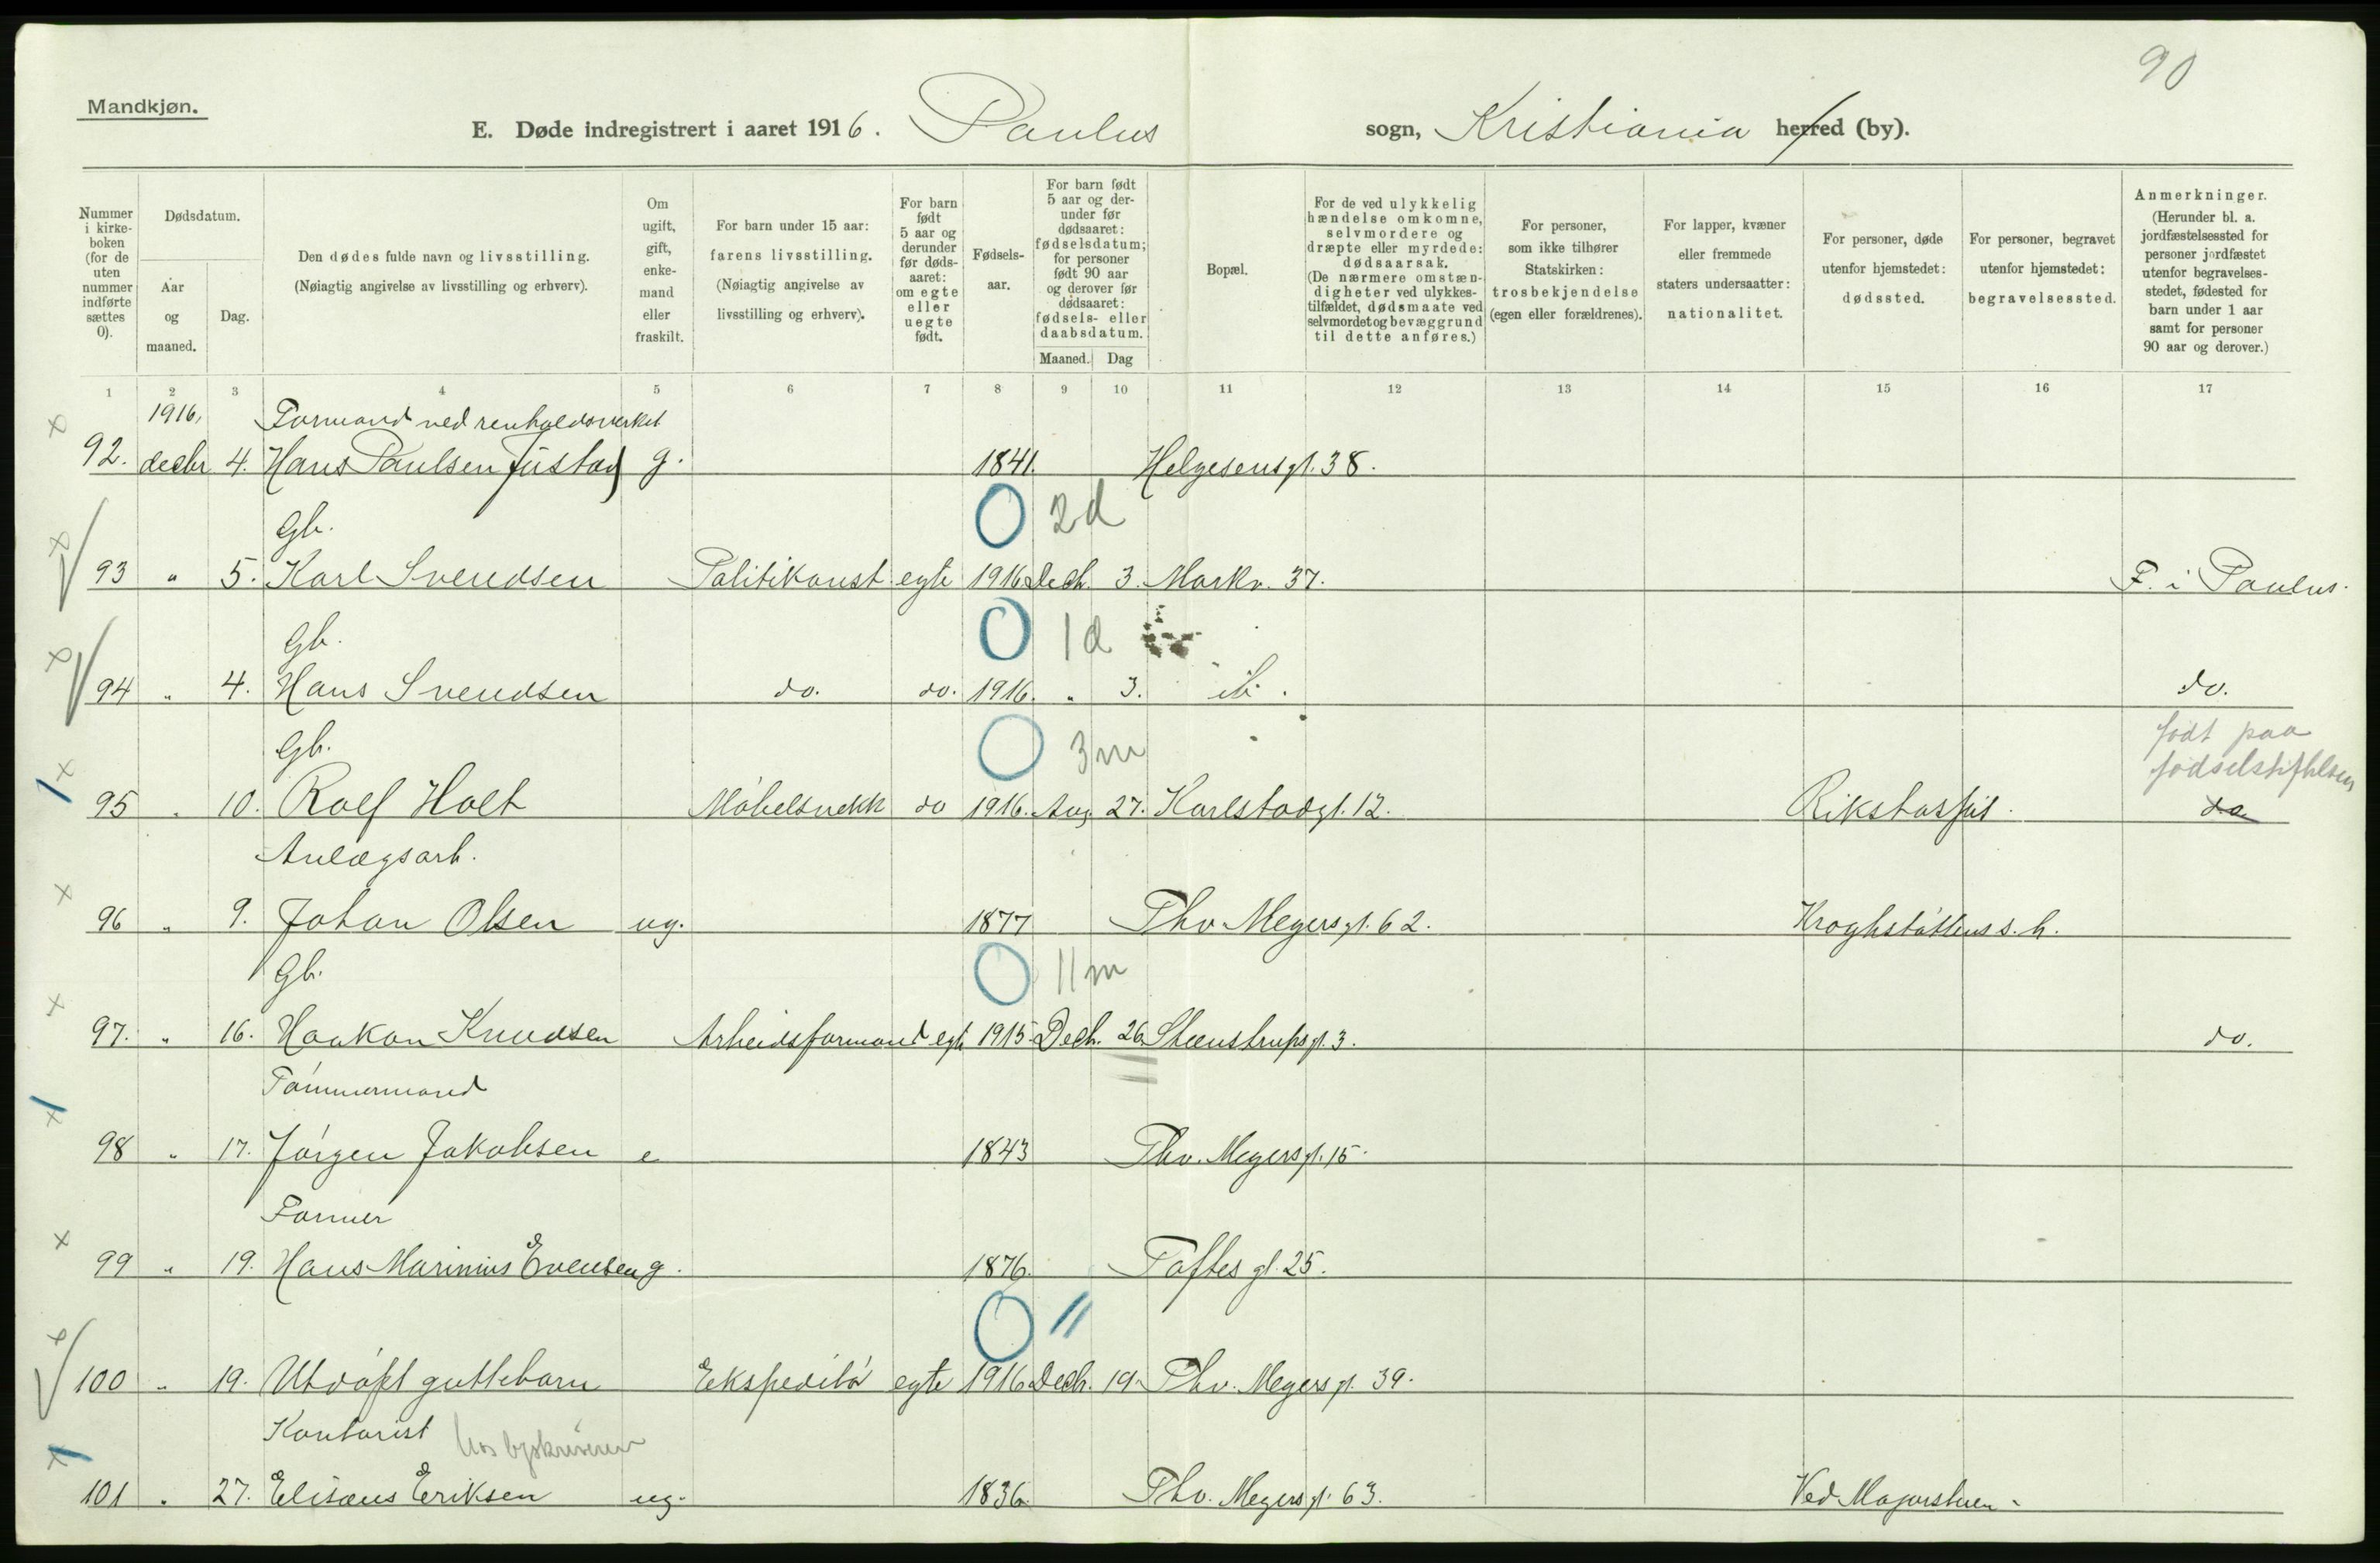 90
Mandkjøn.
E. Døde indregistrert i aaret 1916. Paulus sogn, Kristiania herred (by).
Nummer i kirkeboken (for de uten nummer indførte sættes 0).
Dødsdatum.
Aar og maaned.
Dag.
Den dødes fulde navn og livsstilling.
(Nøiagtig angivelse av livsstilling og erhverv).
Om ugift, gift, enkemand eller fraskilt.
For barn under 15 aar:
farens livsstilling.
(Nøiagtig angivelse av livsstilling og erhverv).
For barn født 5 aar og derunder før dødsaaret: om egte eller uegte født.
Fødselsaar.
For barn født 5 aar og derunder før dødsaaret: fødselsdatum; for personer født 90 aar og derover før dødsaaret: fødsels- eller daabsdatum.
Maaned. Dag
Bopæl.
For de ved ulykkelig hændelse omkomne, selvmordere og dræpte eller myrdede: dødsaarsak.
(De nærmere omstændigheter ved ulykkestilfældet, dødsmaate ved selvmordet og bevæggrund til dette anføres.)
For personer, som ikke tilhører Statskirken: trosbekjendelse (egen eller forældrenes).
For lapper, kvæner eller fremmede staters undersaatter: nationalitet.
For personer, døde utenfor hjemstedet: dødssted.
For personer, begravet utenfor hjemstedet: begravelsessted.
Anmerkninger.
(Herunder bl. a. jordfæstelsessted for personer jordfæstet utenfor begravelsesstedet, fødested for barn under 1 aar samt for personer 90 aar og derover.)
1 2 3 4 5 6 7 8 9 10 11 12 13 14 15 16 17
1916. Formand ved renholdsverket
92. decbr 4. Hans Paulsen Justad g. 1841. Helgesensgt. 38.
Gb. 0 2d
93 " 5. Karl Svendsen Politikonst. egte 1916 Decb. 3. Markv. 37. F. i Paulus.
Gb. 0 1d
94 " 4. Hans Svendsen do. do. 1916. " 3. ib. do.
Gb. 0 3m født paa fødselsstiftelsen
95 " 10. Rolf Holt Møbelsnekk do 1916. Aug. 27. Karlstadgt. 12. Rikshosp. do.
Anlægsarb.
96 " 9. Johan Olsen ug. 1877 Thv Meyersgt. 62. Kroghstøttens s.h.
Gb. 0 11m
97. " 16. Haakon Knudsen Arbeidsformand egte 1915. Decb. 26 Steenstrupsgt. 3. do.
Tømmermand
98 " 17. Jørgen Jakobsen e 1843 Thv. Meyersgt. 15.
Former
99 " 19. Hans Marinius Evensen g. 1876. Toftes gt. 25.
0 11
100 " 19. Utdøpt guttebarn Ekspeditør egte 1916 Decb. 19. Thv. Meyersgt. 39.
Kontorist hos byskriveren
101 " 27. Elisæus Eriksen ug. 1836. Thv. Meyersgt. 63. Ved Majorstuen.